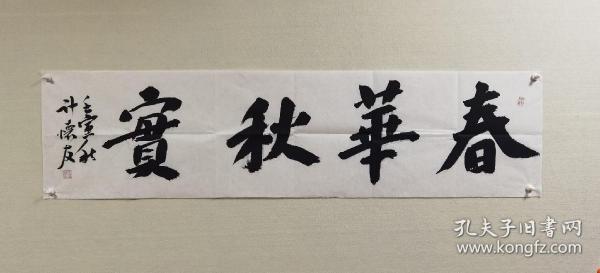 春華秋實
壬寅秋
計懷友
孔夫子旧书网
www.kongfz.com